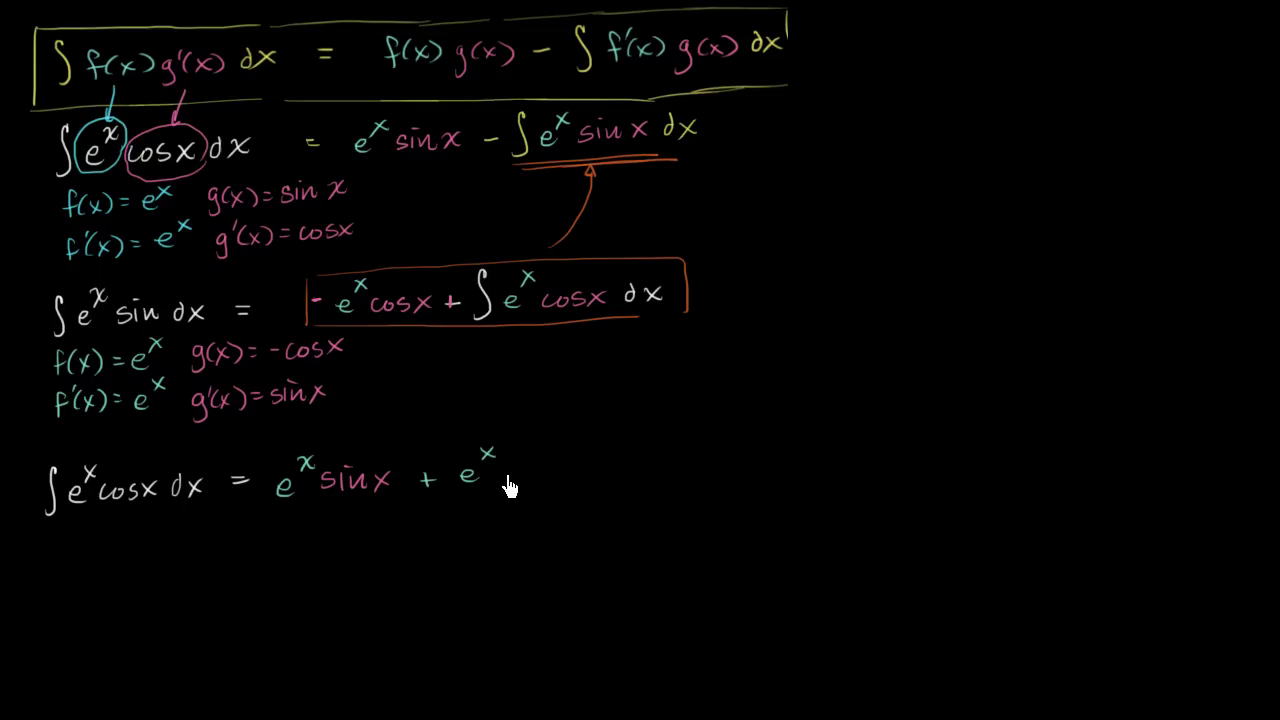 ∫ f(x) g'(x) dx = f(x) g(x) − ∫ f'(x) g(x) dx
∫ e^x cosx dx = e^x sinx − ∫ e^x sin x dx
f(x) = e^x g(x) = sin x
f'(x) = e^x g'(x) = cosx
∫ e^x sin dx = - e^x cosx + ∫ e^x cosx dx
f(x) = e^x g(x) = -cosx
f'(x) = e^x g'(x) = sinx
∫ e^x cosx dx = e^x sinx + e^x